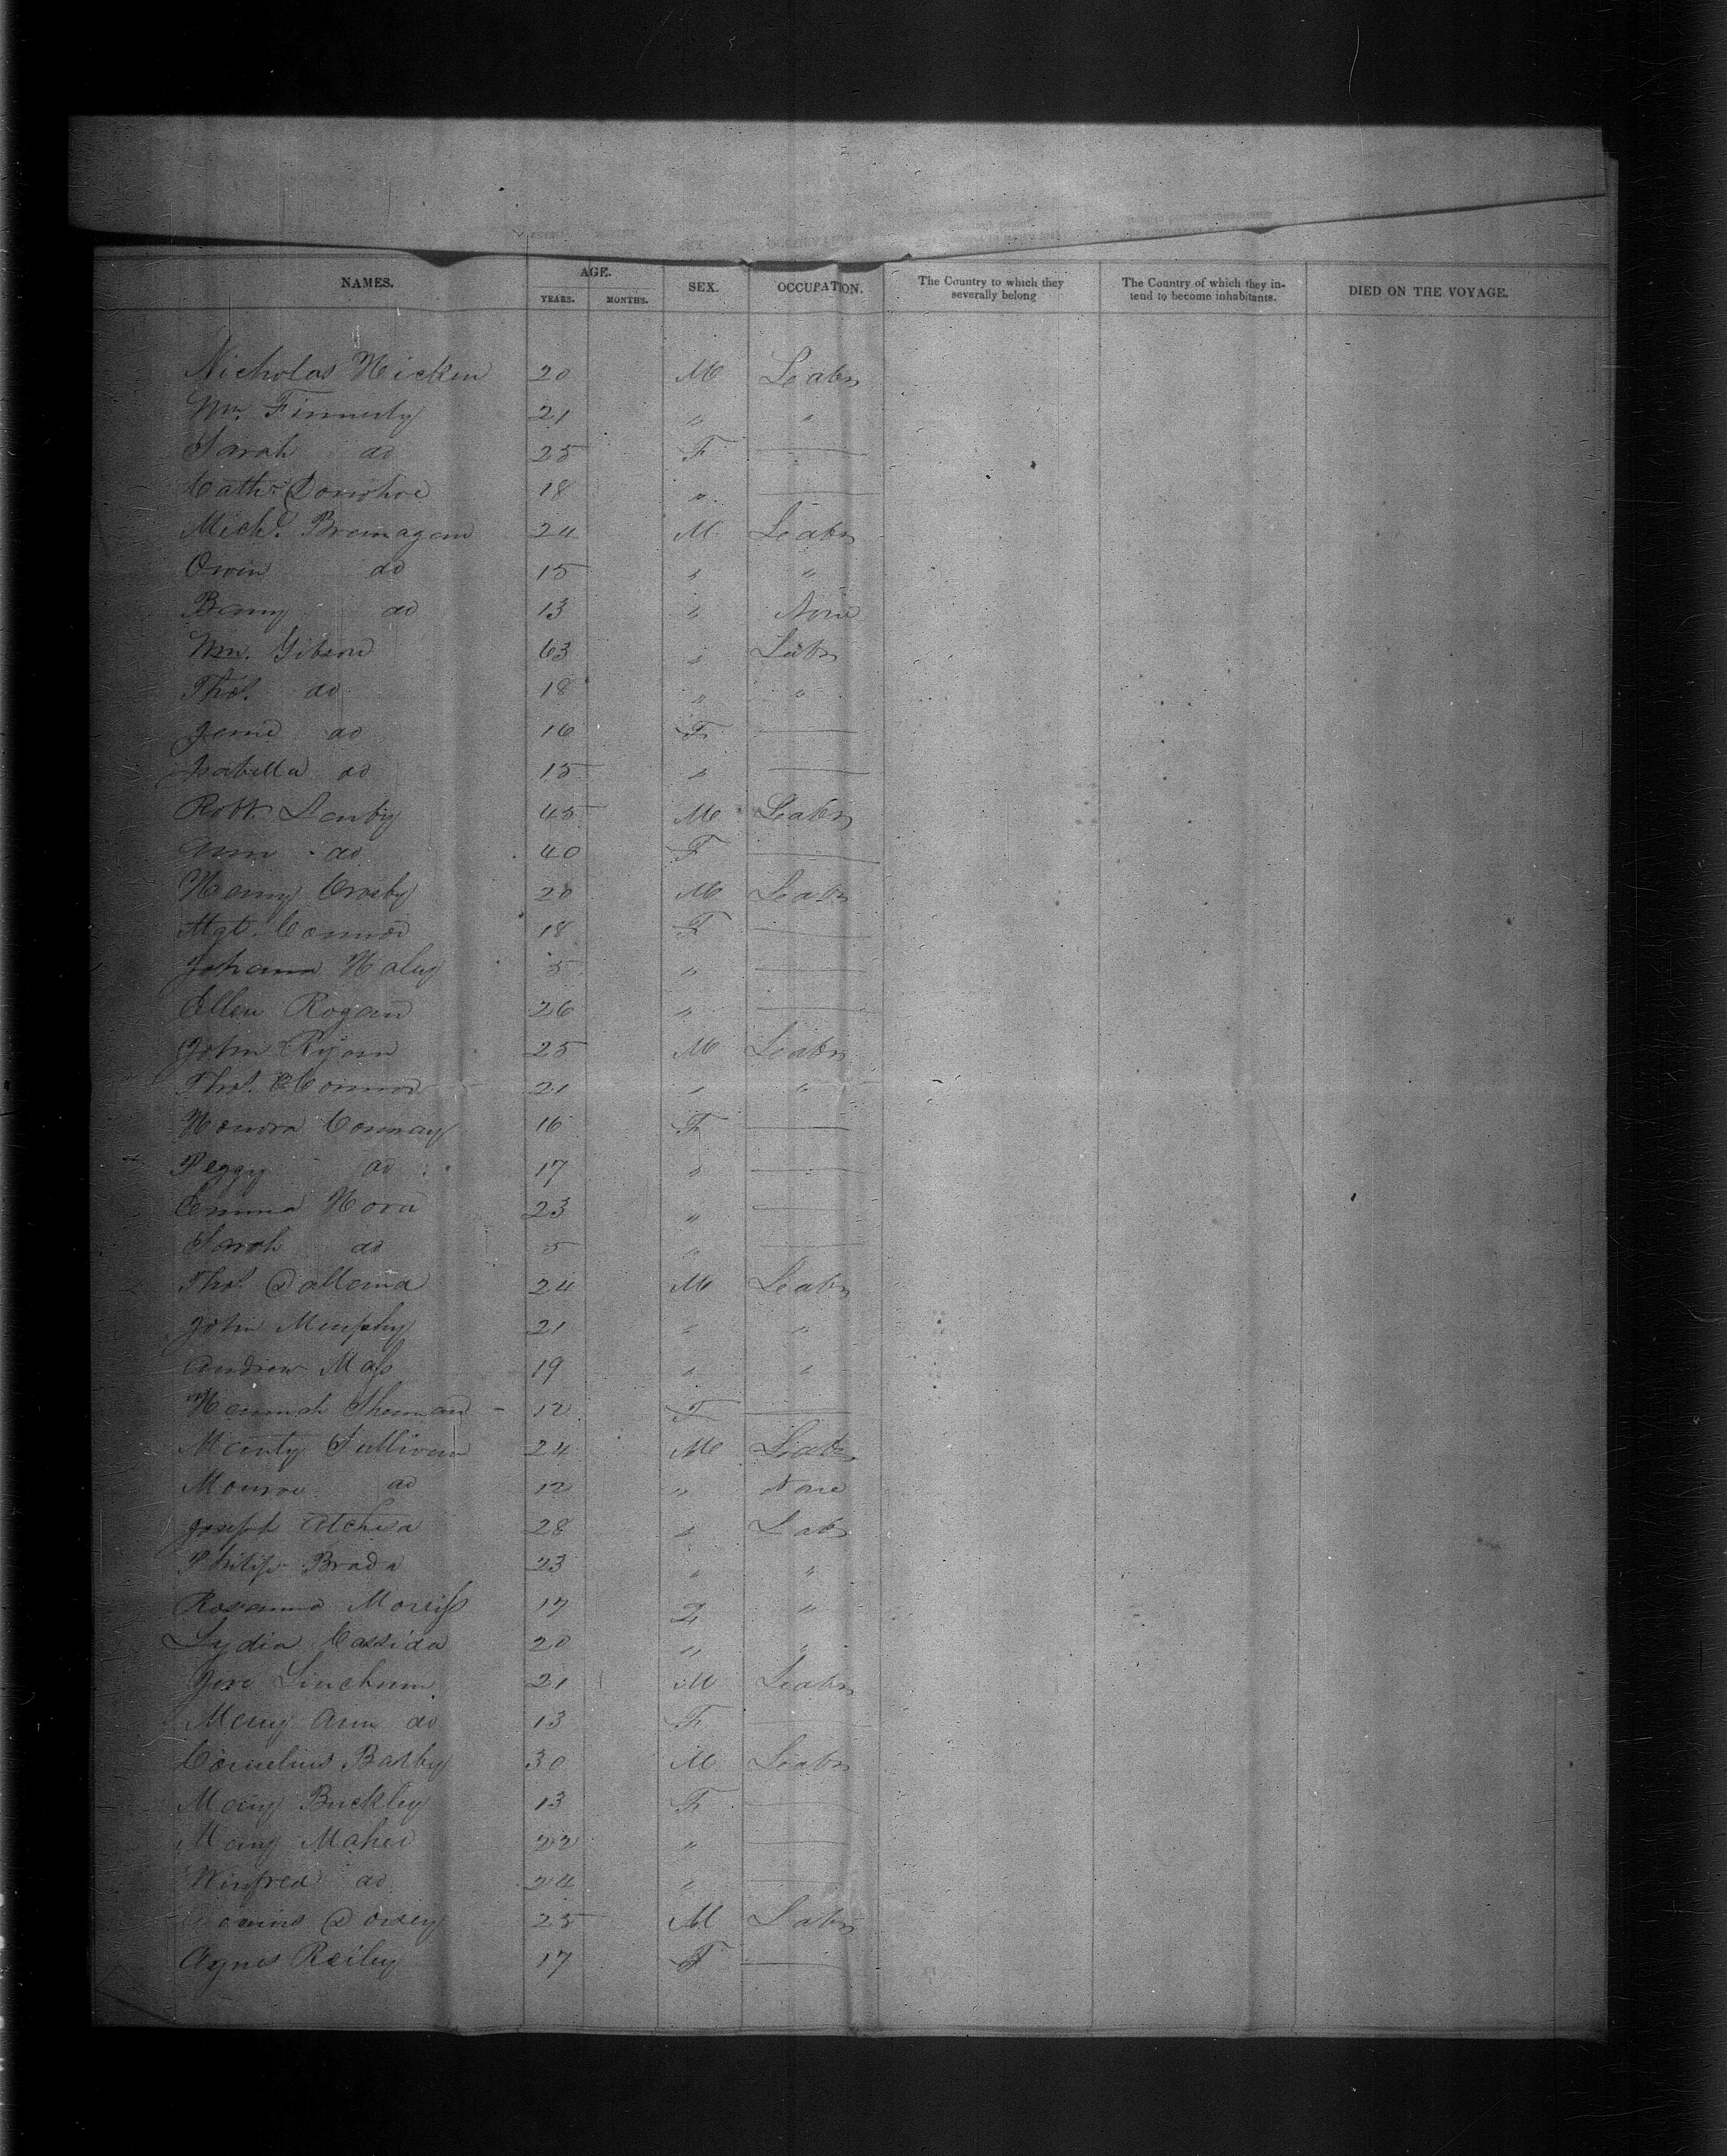 NAMES. AGE. YEARS. MONTHS. SEX. OCCUPATION. The Country to which they severally belong The Country of which they intend to become inhabitants. DIED ON THE VOYAGE.
Nicholas Hicken 20 M Labr
Wm. Finnerty 21 " "
Sarah do 25 F
Cath: Donohoe 18 "
Michl. Branagan 24 M Labr
Owen do 15 " "
Barny do 13 " None
Wm. Gibson 63 " Labr
Thos. do 18 " "
Jane do 16 F
Isabella do 15 "
Robt. 45 M Labr
Ann do 40 F
Henry Crosby 20 M Labr
Mgt. Connor 18 F
Johanna Haley 5 "
Ellen Rogan 26 "
John Ryan 25 M Labr
Thos. Connor 21 " "
Honora Conway 16 F
Peggy do 17 "
Emma Hora 23 "
Sarah do 5 "
Thos. 24 M Labr
John Murphy 21 " "
Andrew Mass 19 " "
Hannah 12 F
Manty Sullivan 24 M Labr
Monroe do 12 " None
Joseph Atchisa 28 " Labr
Philip Brada 23 " "
Rosanna Morriss 17 F "
Lydia Cassida 20 " "
Jere Linchum 21 M Labr
Mary Ann do 13 F
Cornelius Batby 30 M Labr
Mary Buckley 13 F
Mary Maher 22 "
Winfred do 24 "
Dorsey 25 M Labr
Agnes Reiley 17 F